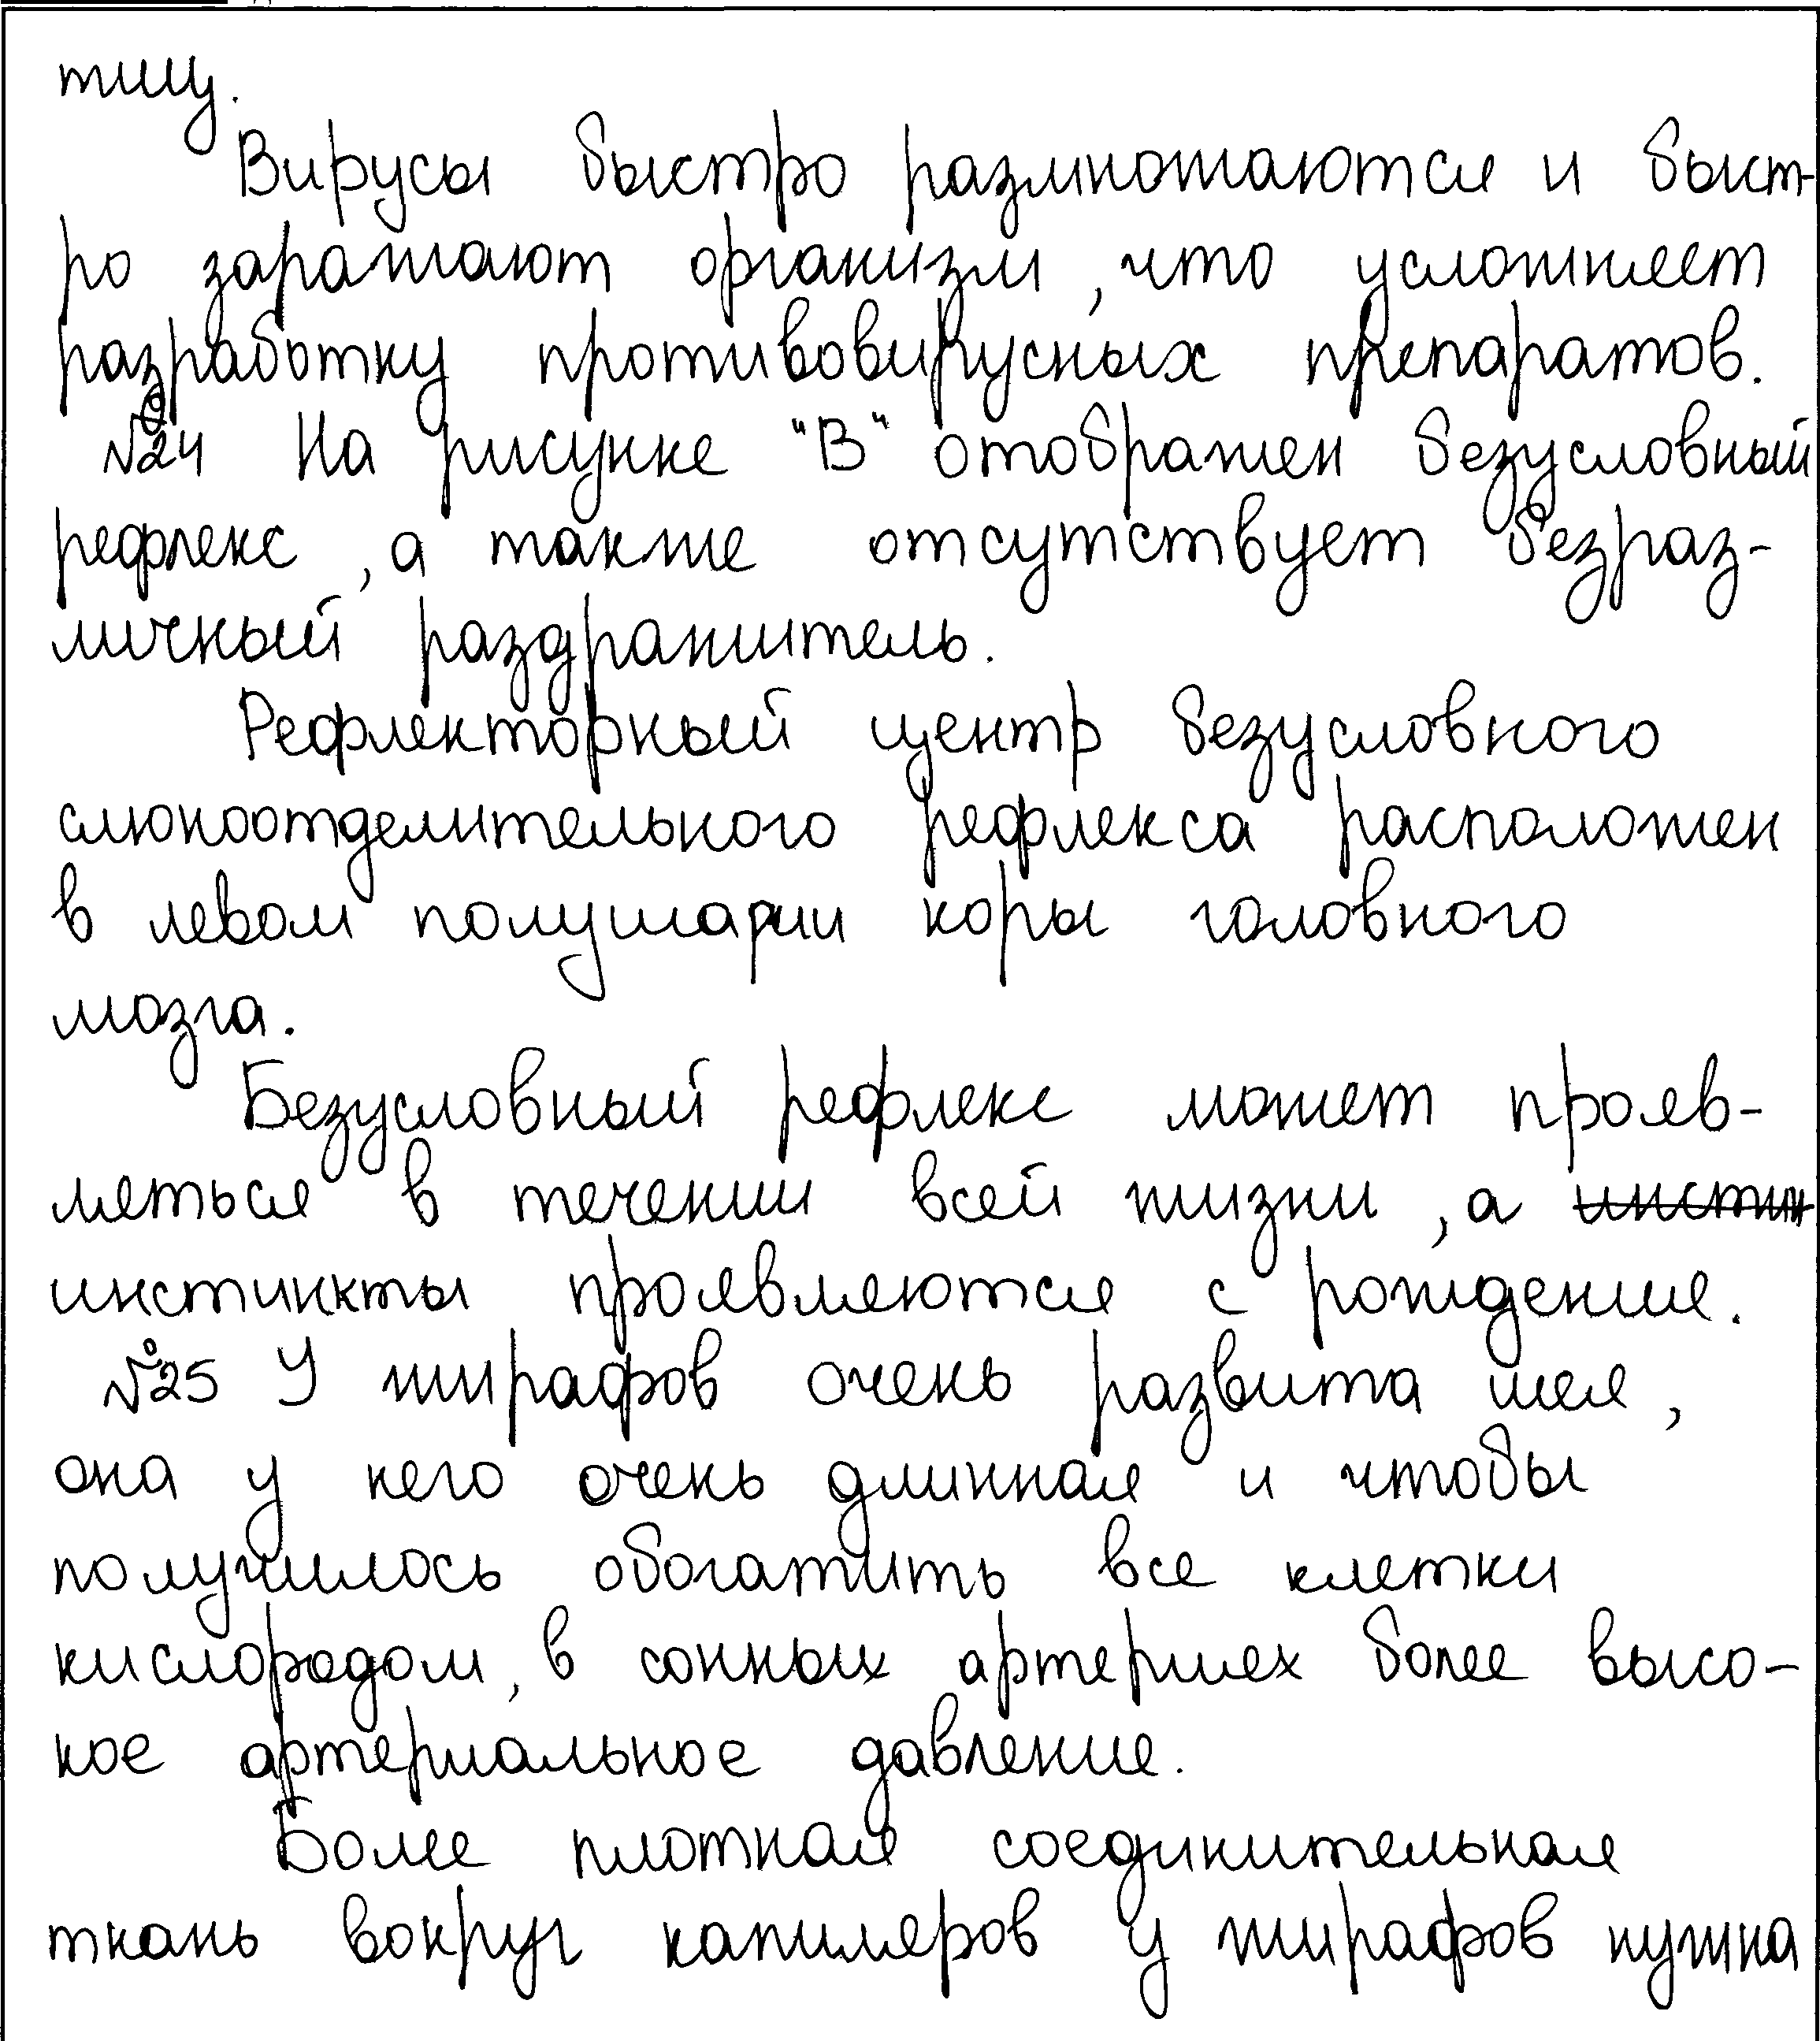 тицу.
Вирусы быстро размножаются и быст-
ро заражают организм, что усложняет
разработку противовирусных препаратов.
№24 На рисунке "В" отображен безусловный
рефлекс, а также отсутствует безраз-
личный раздражитель.
Рефлекторный центр безусловного
слюноотделительного рефлекса расположен
в левом полушарии коры головного
мозга.
Безусловный рефлекс может прояв-
ляться в течении всей жизни, а инстин
инстинкты проявляются с рождения.
№25 У жирафов очень развита шея,
она у него очень длинная и чтобы
получилось обогатить все клетки
кислородом, в сонных артериях более высо-
кое артериальное давление.
Более плотная соединительная
ткань вокруг капиляров у жирафов нужна